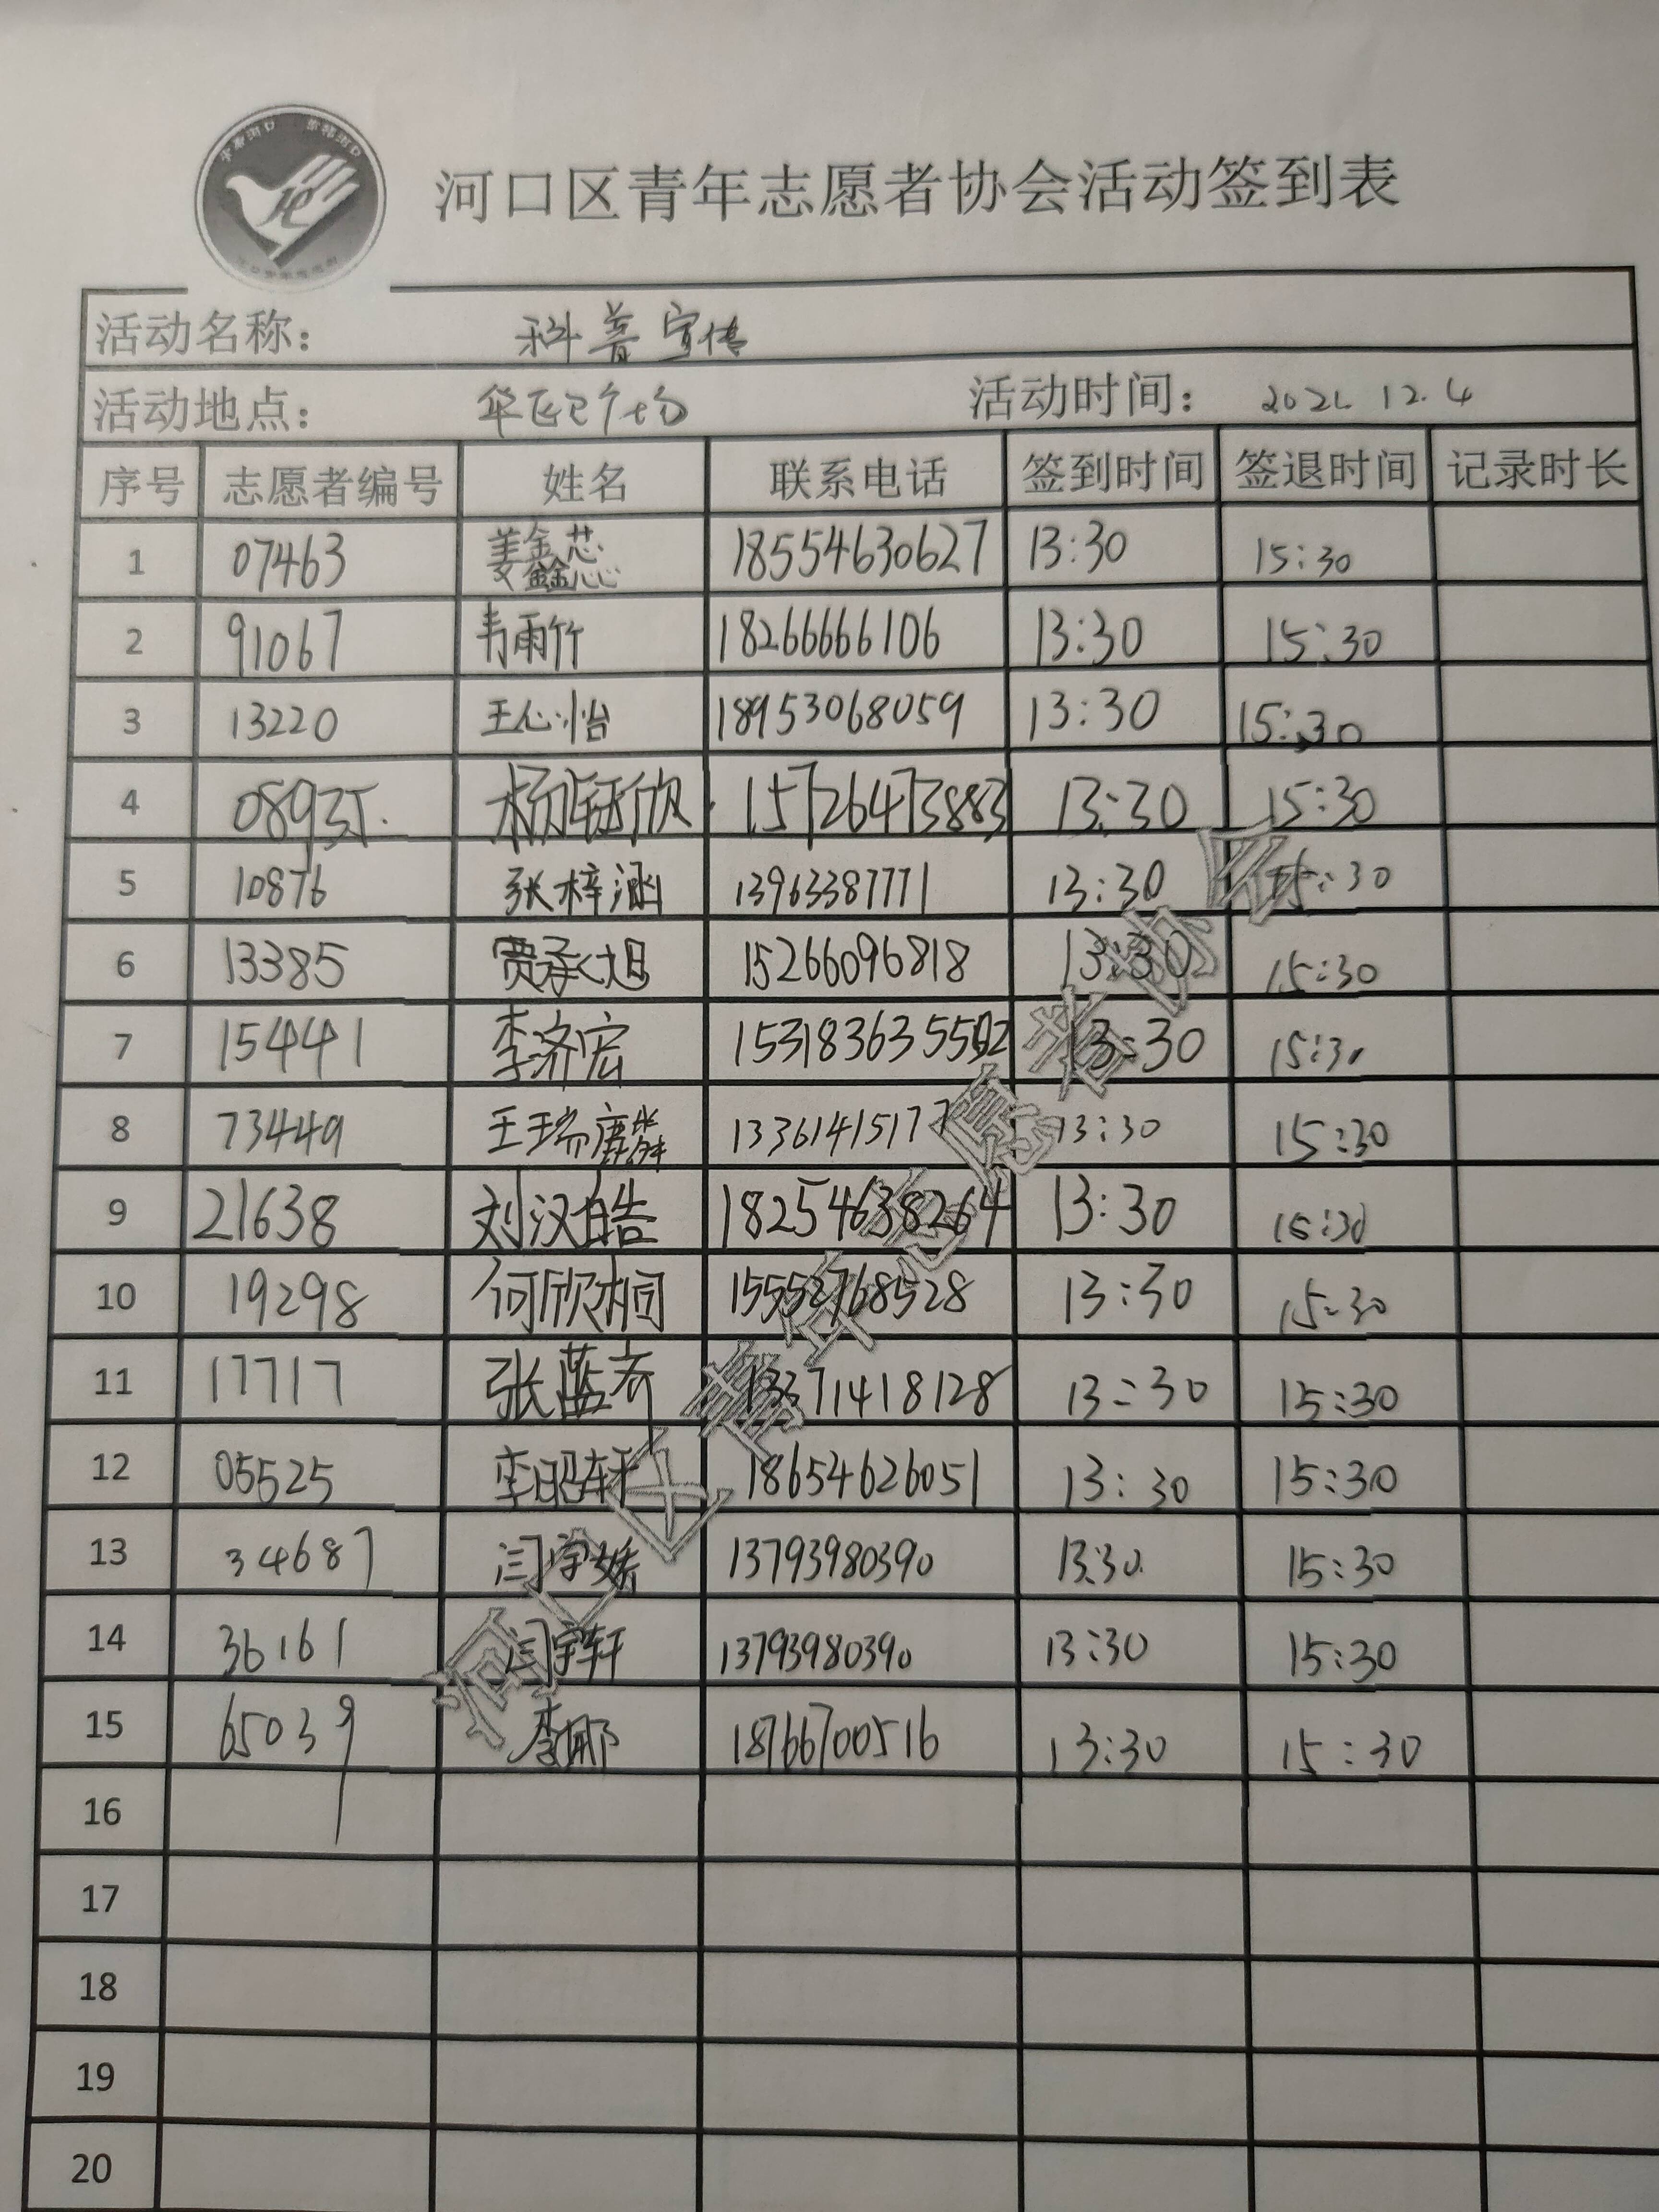 河口区青年志愿者协会活动签到表
活动名称： 科普宣传
活动地点： 活动时间： 12.4
序号 志愿者编号 姓名 联系电话 签到时间 签退时间 记录时长
1 07463 姜鑫蕊 18554630627 13:30 15:30
2 91067 韦雨竹 18266666106 13:30 15:30
3 13220 王心怡 18953068059 13:30 15:30
4 08935. 杨钰欣 15726473883 13:30 15:30
5 10876 张梓涵 13963387771 13:30 15:30
6 13385 贾承旭 15266096818 13:30 15:30
7 15441 李济宏 13:30 15:30
8 73449 王瑞麟 13361415177 13:30 15:30
9 21638 刘汉皓 18254638264 13:30 15:30
10 19298 何欣桐 15552768528 13:30 15:30
11 17717 张蓝奇 13371418128 13:30 15:30
12 05525 李昭轩 18654626051 13:30 15:30
13 34687 闫学姝 13793980390 13:30 15:30
14 36161 闫宇轩 13793980390 13:30 15:30
15 65039 李娜 18766700516 13:30 15:30
16
17
18
19
20
河口区青年志愿者协会